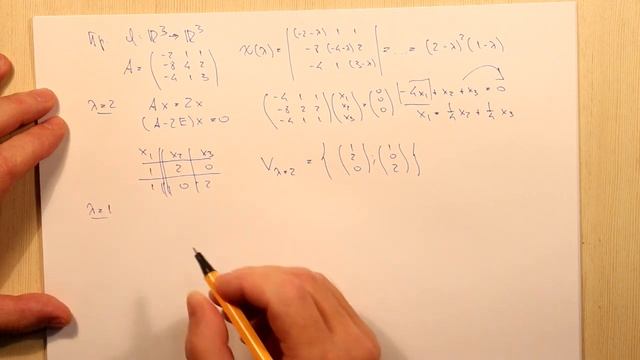 Пр. A: ℝ³→ℝ³
A = ( -2 1 1 ; -8 4 2 ; -4 1 3 )
χ(λ) = | (-2-λ) 1 1 ; -8 (4-λ) 2 ; -4 1 (3-λ) | = ... = (2-λ)²(1-λ)
λ=2 Ax = 2x
(A-2E)x = 0
( -4 1 1 ; -8 2 2 ; -4 1 1 ) ( x₁ ; x₂ ; x₃ ) = ( 0 ; 0 ; 0 )
-4x₁ + x₂ + x₃ = 0
x₁ = 1/4 x₂ + 1/4 x₃
x₁ x₂ x₃
1 2 0
1 0 2
V_{λ=2} = { ( 1 ; 2 ; 0 ) ; ( 1 ; 0 ; 2 ) }
λ=1